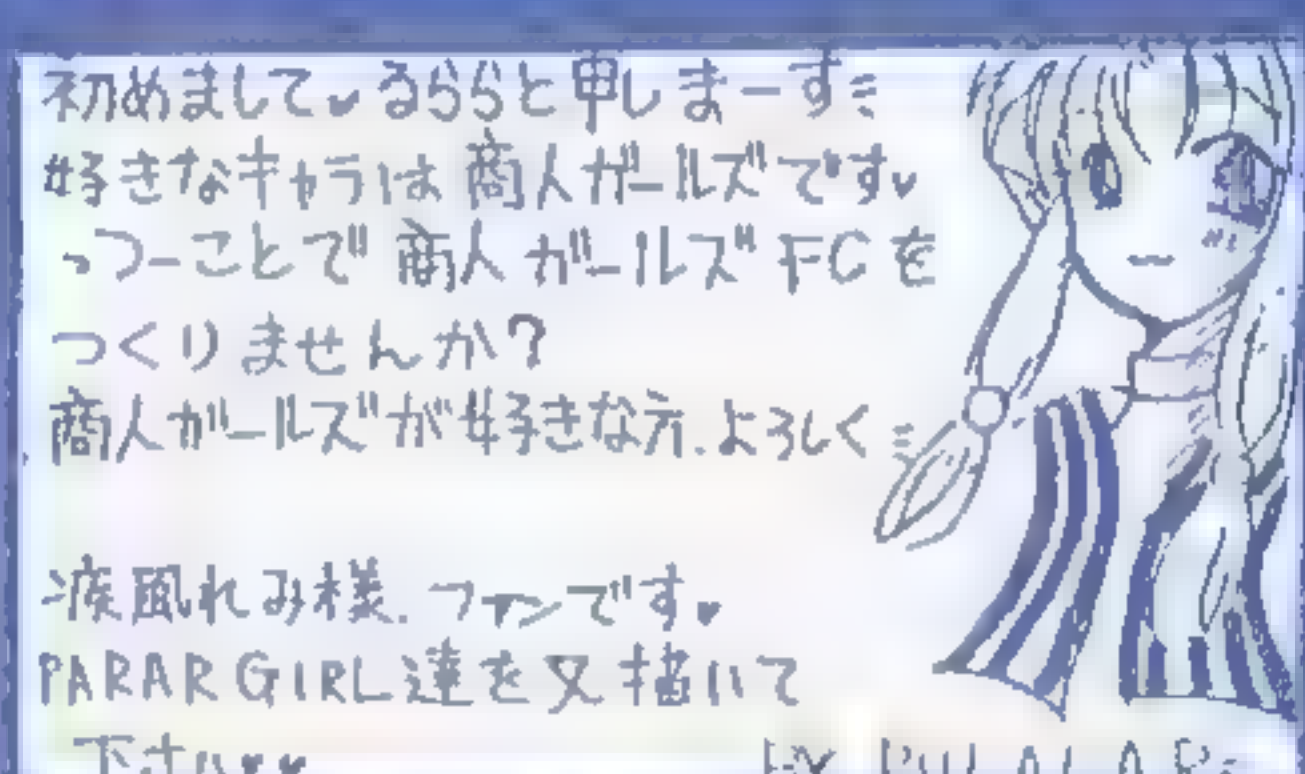 初めまして♥るららと申しまーすミ
好きなキャラは商人ガールズです♥
っつーことで商人ガールズFCを
つくりませんか?
商人ガールズが好きな方.よろしくミ
疾風れみ様.ファンです♥
PARAR GIRL達を又描いて
下さい♥♥